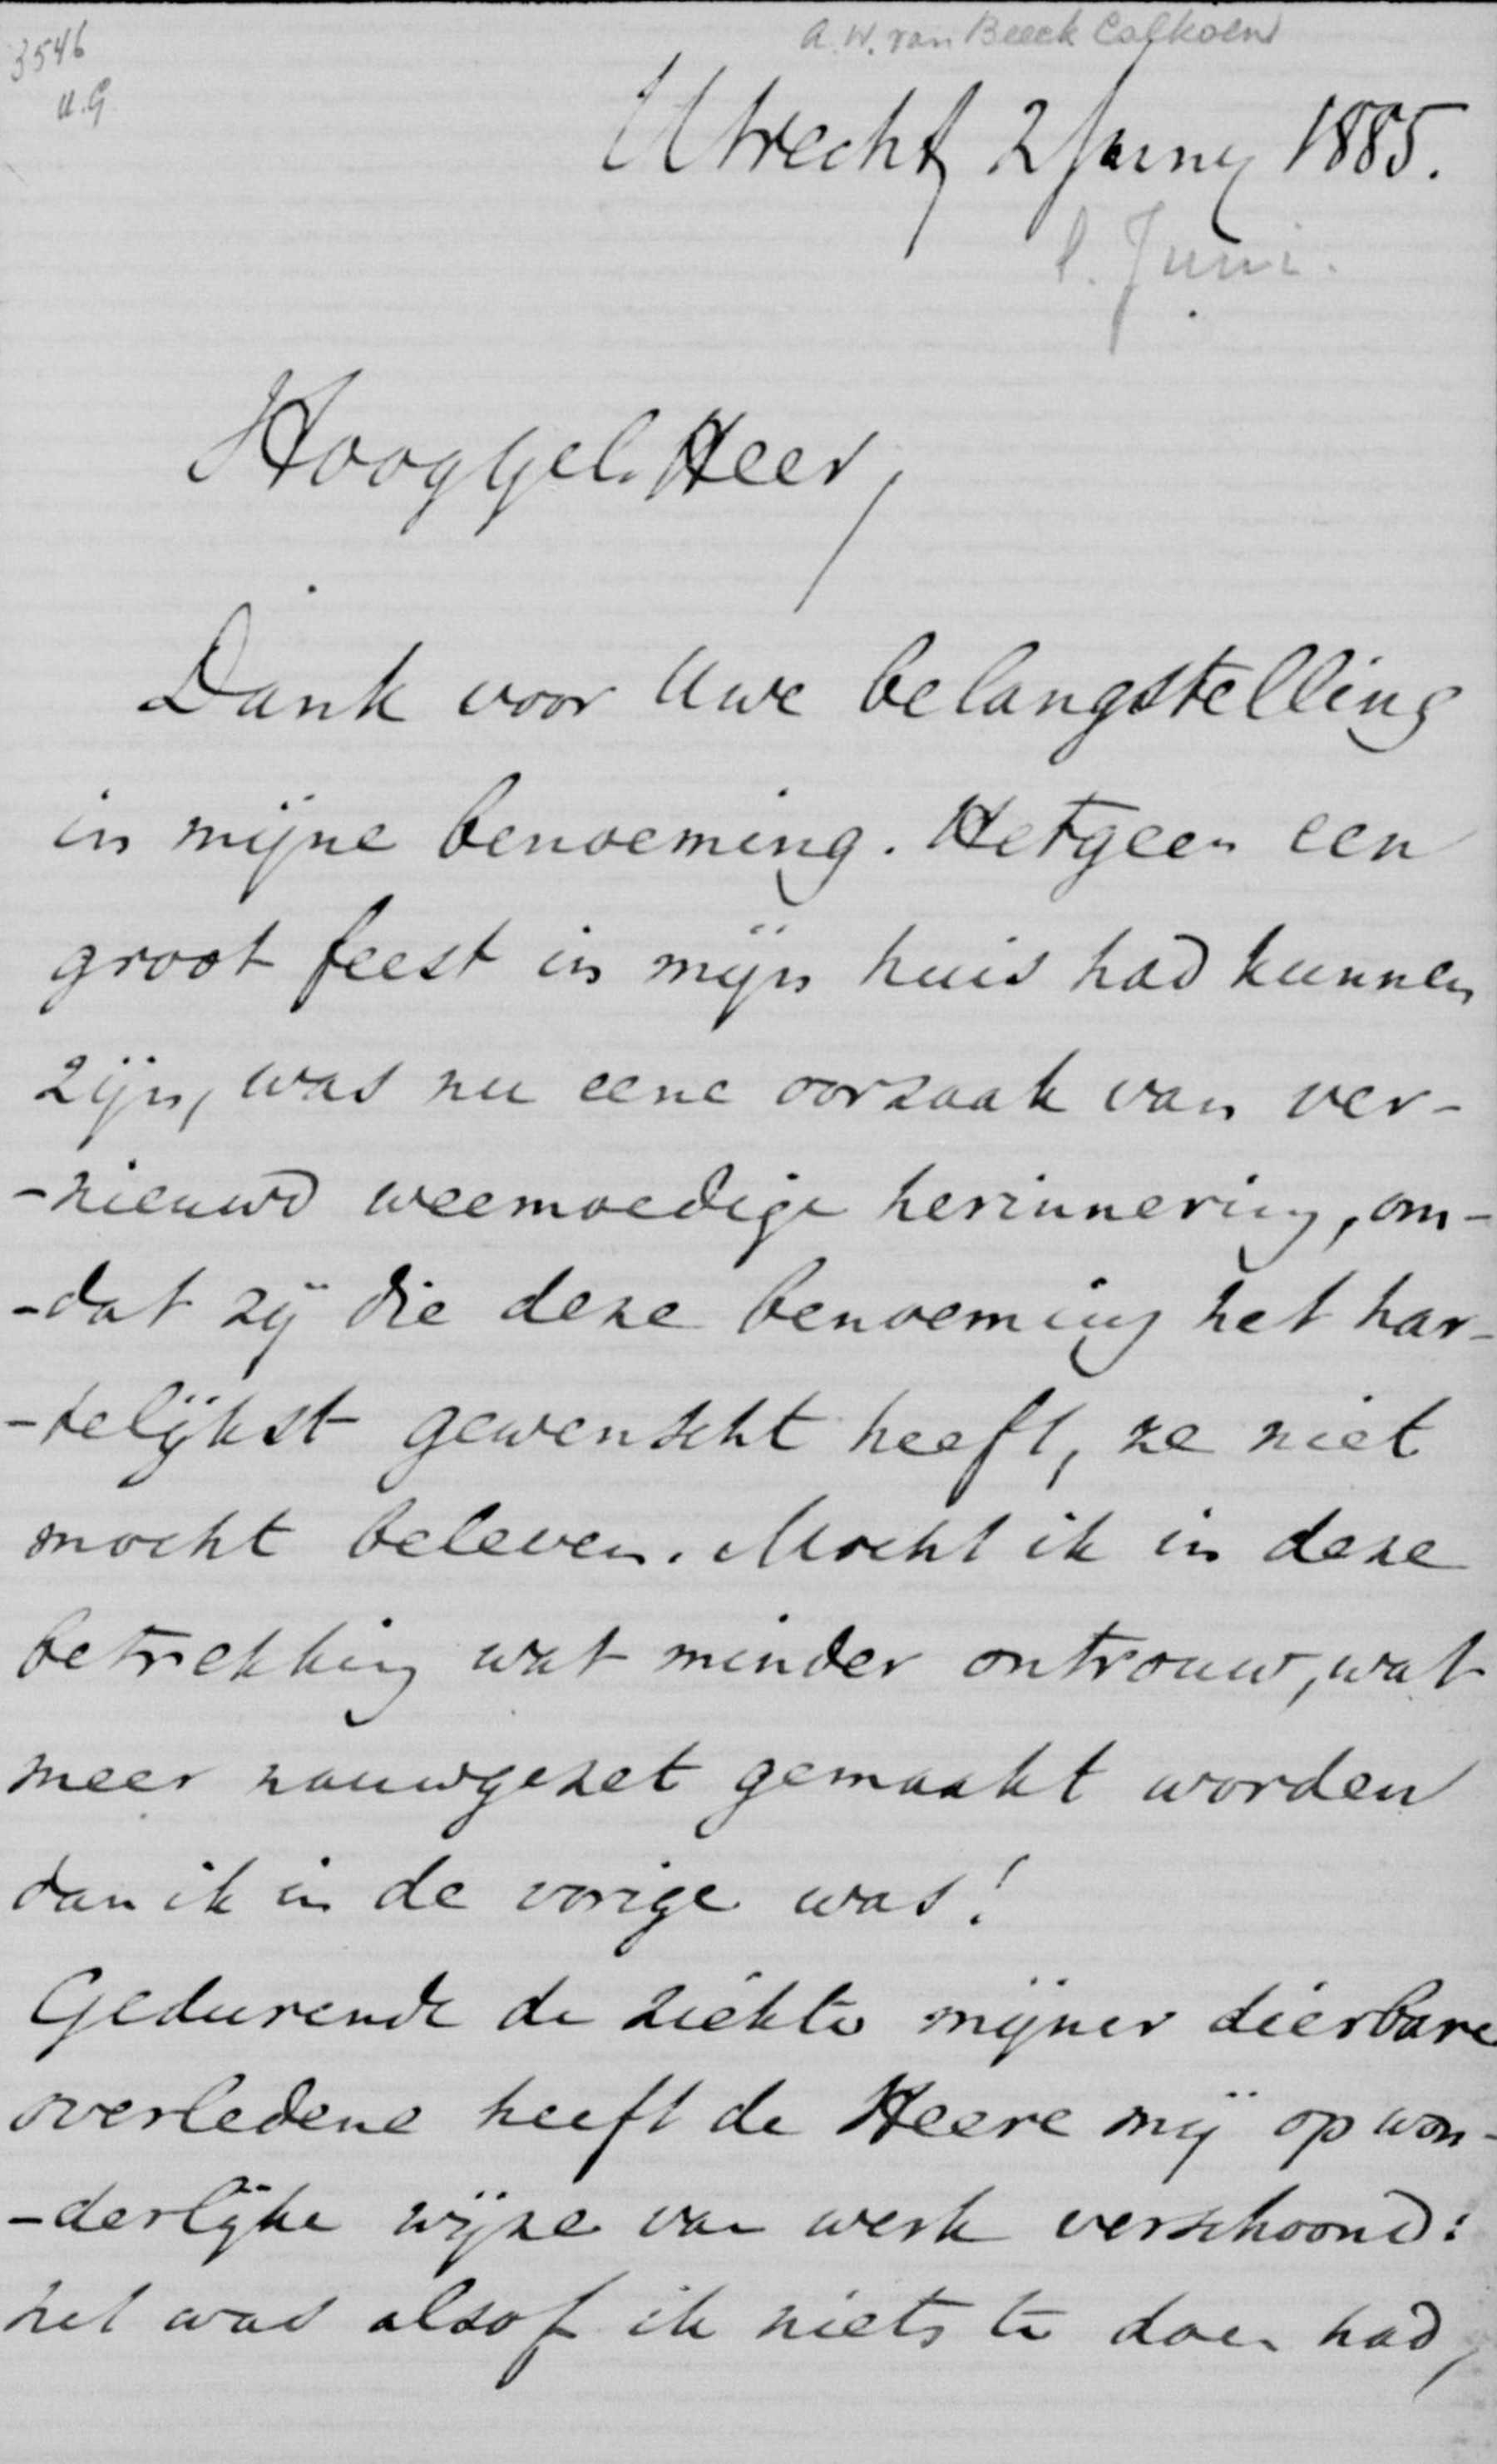 3546
U.G.
A. W. van Beeck Calkoen
Utrecht, 2 Juny 1885.
l. Juni.
Hooggel. Heer,
Dank voor Uwe belangstelling
in mijne benoeming. Hetgeen een
groot feest in mijn huis had kunnen
zijn, was nu eene oorzaak van ver-
-nieuwd weemoedige herinnering, om-
-dat zij die deze benoeming het har-
-telijkst gewenscht heeft, ze niet
mocht beleven. Mocht ik in deze
betrekking wat minder ontrouw, wat
meer nauwgezet gemaakt worden
dan ik in de vorige was!
Gedurende de ziekte mijner dierbare
overledene heeft de Heere mij op won-
-derlijke wijze van werk verschoond:
het was alsof ik niets te doen had,